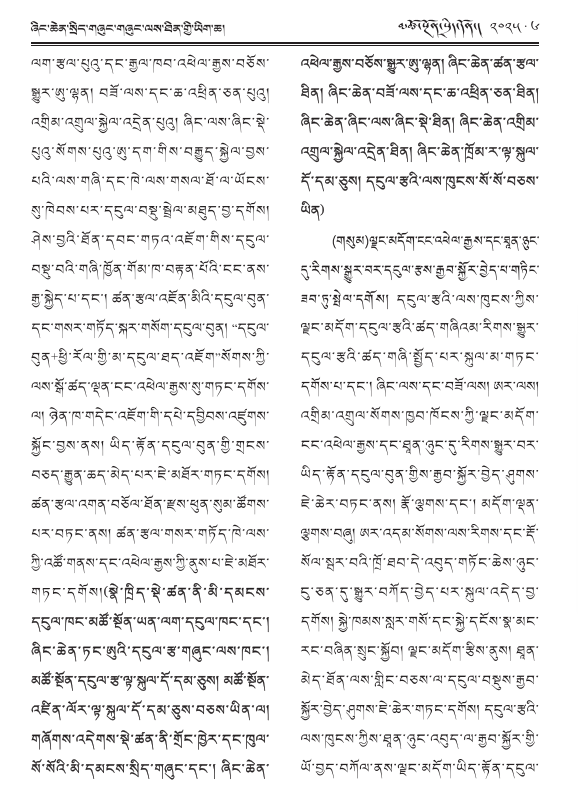 ཞིང་ཆེན་སྲིད་གཞུང་གཞུང་ལས་ཐིན་གྱི་ཡིག་ཆ།
༢༠༢༥ · ༦
ལག་རྩལ་པུའུ་དང་རྒྱལ་ཁབ་འཕེལ་རྒྱས་བཅོས་
སྒྱུར་ཨུ་ལྷན། བཟོ་ལས་དང་ཆ་འཕྲིན་ཅན་པུའུ།
འགྲིམ་འགྲུལ་སྐྱེལ་འདྲེན་པུའུ། ཞིང་ལས་ཞིང་སྡེ་
པུའུ་སོགས་པུའུ་ཨུ་དག་གིས་བརྒྱུད་སྐྱེལ་བྱས་
པའི་ལས་གཞི་དང་ཁེ་ལས་གསལ་ཐོ་ལ་ཡོངས་
སུ་ཁེབས་པར་དངུལ་བསྡུ་སྤྲེལ་མཐུད་བྱ་དགོས།
ཤེས་བྱའི་ཐོན་དབང་གཏའ་འཇོག་གིས་དངུལ་
བསྡུ་བའི་གཞི་ཁྱོན་གོམ་ཁ་བརྟན་པོའི་ངང་ནས་
རྒྱ་སྐྱེད་པ་དང་། ཚན་རྩལ་འཛོན་མིའི་དངུལ་བུན་
དང་གསར་གཏོད་སྐར་གསོག་དངུལ་བུན། “དངུལ་
བུན+ཕྱི་རོལ་གྱི་མ་དངུལ་ཐད་འཇོག”སོགས་ཀྱི་
ལས་སྒོ་ཚད་ལྡན་ངང་འཕེལ་རྒྱས་སུ་གཏང་དགོས་
ལ། ཉེན་ཁ་གདེང་འཇོག་གི་དཔེ་དབྱིབས་འཛུགས་
སྐྱོང་བྱས་ནས། ཡིད་རྟོན་དངུལ་བུན་གྱི་གྲངས་
བཅད་རྒྱུན་ཆད་མེད་པར་ཇེ་མཐོར་གཏང་དགོས།
ཚན་རྩལ་འགན་བཅོལ་ཐོན་རྫས་ཕུན་སུམ་ཚོགས་
པར་བཏང་ནས། ཚན་རྩལ་གསར་གཏོད་ཁེ་ལས་
ཀྱི་འཚོ་གནས་དང་འཕེལ་རྒྱས་ཀྱི་ནུས་པ་ཇེ་མཐོར་
གཏང་དགོས།(སྣེ་ཁྲིད་སྡེ་ཚན་ནི་མི་དམངས་
དངུལ་ཁང་མཚོ་སྔོན་ཡན་ལག་དངུལ་ཁང་དང་།
ཞིང་ཆེན་ཏང་ཨུའི་དངུལ་རྩ་གཞུང་ལས་ཁང་།
མཚོ་སྔོན་དངུལ་རྩ་ལྟ་སྐུལ་དོ་དམ་ཅུས། མཚོ་སྔོན་
འཛིན་ལོར་ལྟ་སྐུལ་དོ་དམ་ཅུས་བཅས་ཡིན་ལ།
གཞོགས་འདེགས་སྡེ་ཚན་ནི་གྲོང་ཁྱེར་དང་ཁུལ་
སོ་སོའི་མི་དམངས་སྲིད་གཞུང་དང་། ཞིང་ཆེན་
འཕེལ་རྒྱས་བཅོས་སྒྱུར་ཨུ་ལྷན། ཞིང་ཆེན་ཚན་རྩལ་
ཐིན། ཞིང་ཆེན་བཟོ་ལས་དང་ཆ་འཕྲིན་ཅན་ཐིན།
ཞིང་ཆེན་ཞིང་ལས་ཞིང་སྡེ་ཐིན། ཞིང་ཆེན་འགྲིམ་
འགྲུལ་སྐྱེལ་འདྲེན་ཐིན། ཞིང་ཆེན་ཁྲོམ་ར་ལྟ་སྐུལ་
དོ་དམ་ཅུས། དངུལ་རྩའི་ལས་ཁུངས་སོ་སོ་བཅས་
ཡིན)
(གསུམ)ལྗང་མདོག་ངང་འཕེལ་རྒྱས་དང་ཐྲན་ཉུང་
དུ་རིགས་སྒྱུར་བར་དངུལ་རྩས་རྒྱབ་སྐྱོར་བྱེད་པ་གཏིང་
ཟབ་ཏུ་སྤེལ་དགོས། དངུལ་རྩའི་ལས་ཁུངས་ཀྱིས་
ལྗང་མདོག་དངུལ་རྩའི་ཚད་གཞིའམ་རིགས་སྒྱུར་
དངུལ་རྩའི་ཚད་གཞི་སྤྱོད་པར་སྐུལ་མ་གཏང་
དགོས་པ་དང་། ཞིང་ལས་དང་བཟོ་ལས། ཨར་ལས།
འགྲིམ་འགྲུལ་སོགས་ཁྱབ་ཁོངས་ཀྱི་ལྗང་མདོག་
ངང་འཕེལ་རྒྱས་དང་ཐྲན་ཉུང་དུ་རིགས་སྒྱུར་བར་
ཡིད་རྟོན་དངུལ་བུན་གྱིས་རྒྱབ་སྐྱོར་བྱེད་ཤུགས་
ཇེ་ཆེར་བཏང་ནས། རྡོ་ལྕགས་དང་། མདོག་ལྡན་
ལྕགས་བཞུ། ཨར་འདམ་སོགས་ལས་རིགས་དང་རྡོ་
སོལ་སྦར་བའི་ཁྲོ་ཐབ་དེ་འབུད་གཏོང་ཆེས་ཉུང་
དུ་ཅན་དུ་སྒྱུར་བཀོད་བྱེད་པར་སྐུལ་འདེད་བྱ་
དགོས། སྐྱེ་ཁམས་སླར་གསོ་དང་སྐྱེ་དངོས་སྣ་མང་
རང་བཞིན་སྲུང་སྐྱོབ། ལྗང་མདོག་རྩིས་ནུས། ཐྲན་
མེད་ཐོན་ལས་གླིང་བཅས་ལ་དངུལ་བསྡུས་རྒྱབ་
སྐྱོར་བྱེད་ཤུགས་ཇེ་ཆེར་གཏང་དགོས། དངུལ་རྩའི་
ལས་ཁུངས་ཀྱིས་ཐྲན་ཉུང་འབུད་ལ་རྒྱབ་སྐྱོར་གྱི་
ཡོ་བྱད་བཀོལ་ནས་ལྗང་མདོག་ཡིད་རྟོན་དངུལ་